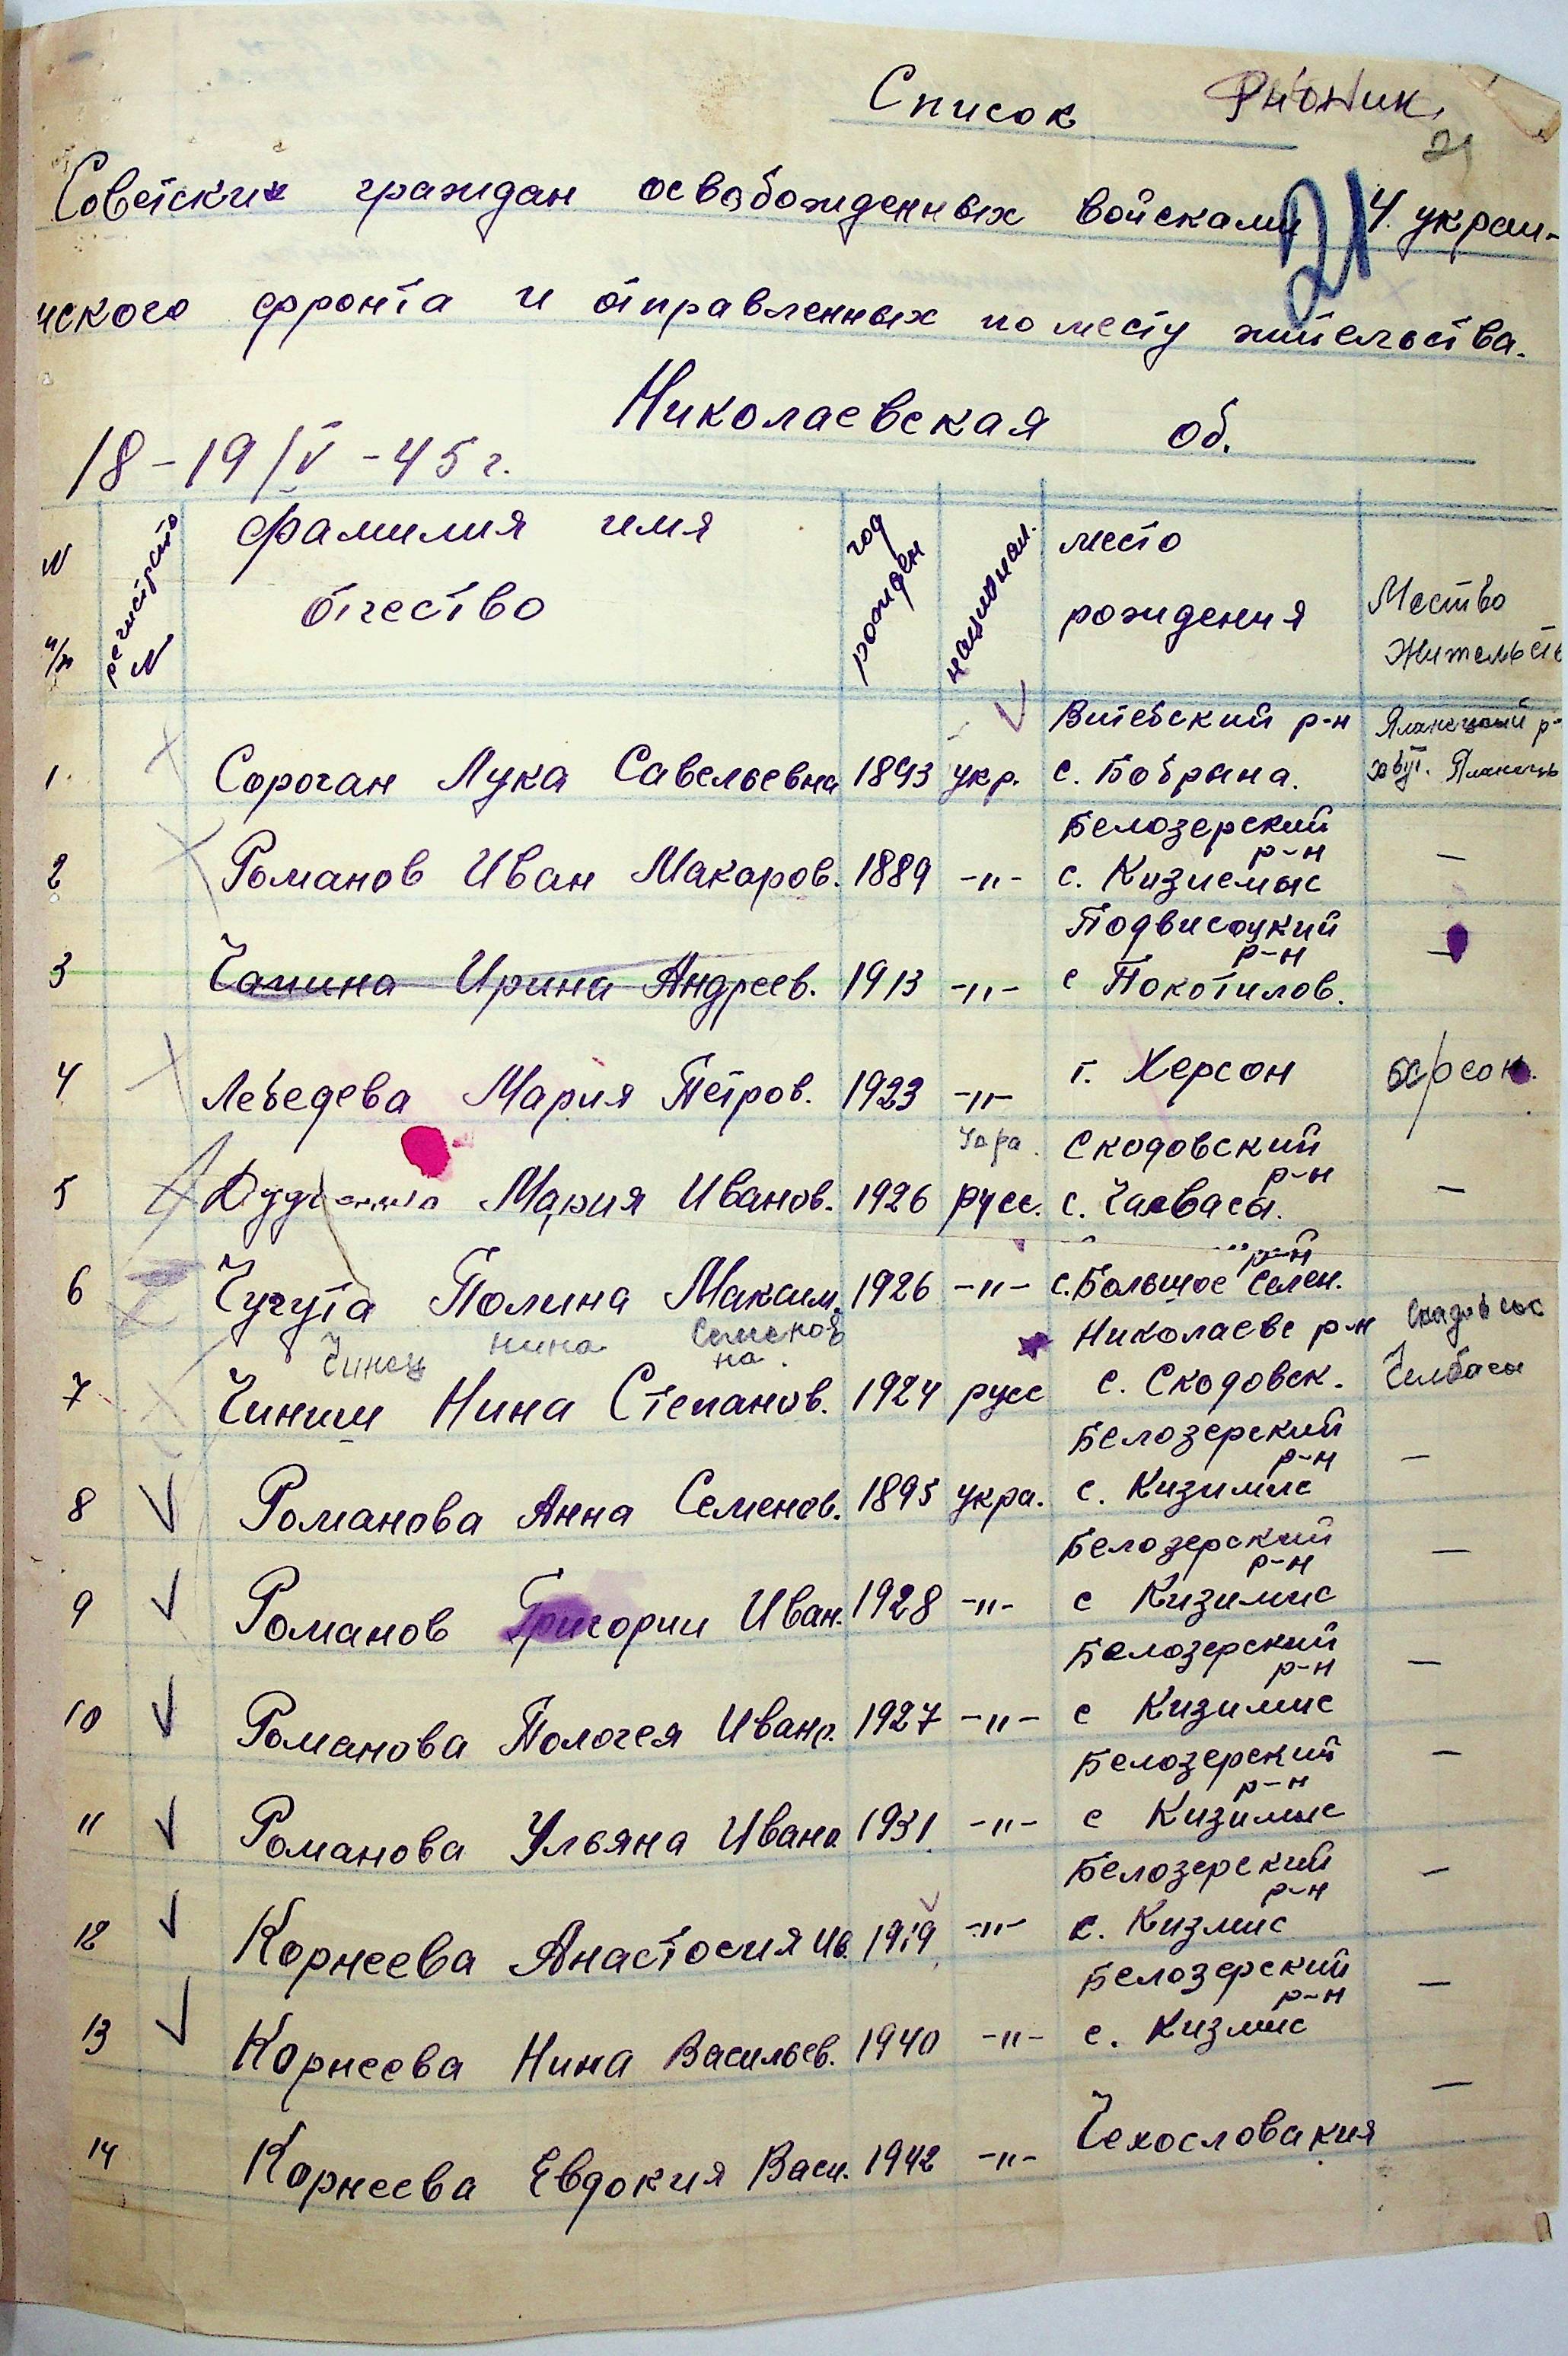 Список
21
Советских граждан освобожденных войсками 4. украи-
21
нского фронта и отправленных по месту жительства.
Николаевская об.
18-19/V-45 г.
N п/п регистрств N фамилия имя отчество год рожден национал. место рождения Мество Жительств
Витебский р-н
1. Сорочан Лука Савельевна 1893 укр. с. Бобрана.
Белозерский р-н
2 Романов Иван Макаров. 1889 -"- с. Кизиемыс —
Подвисоцкий р-н
3 Чапина Ирина Андреев. 1913 -"- с Покотилов. —
4 Лебедева Мария Петров. 1923 -"- г. Херсон
Скодовский р-н
5 Мария Иванов. 1926 русс. с. Чалвасы. —
р-н
6 Чугута Полина Максим. 1926 -"- с. Большое Селен.
Чинец Нина Семенов на. Николаевс р-н
7 Чиниш Нина Степанов. 1924 русс с. Скодовск. Челбасы
Белозерский р-н
8 Романова Анна Семенов. 1895 укра. с. Кизимис —
Белозерский р-н
9 Романов Григории Иван. 1928 -"- с Кизимис —
Белозерский р-н
10 Романова Пологея Ивано. 1927 -"- с Кизимис —
Белозерский р-н
11 Романова Ульяна Ивано 1931 -"- с Кизимыс —
Белозерский р-н
12 Корнеева Анастосия Ив. 1919 -"- с. Кизмис —
Белозерский р-н
13 Корнеева Нина Васильев. 1940 -"- с. Кизмис —
14 Корнеева Евдокия Васи. 1942 -"- Чехословакия —